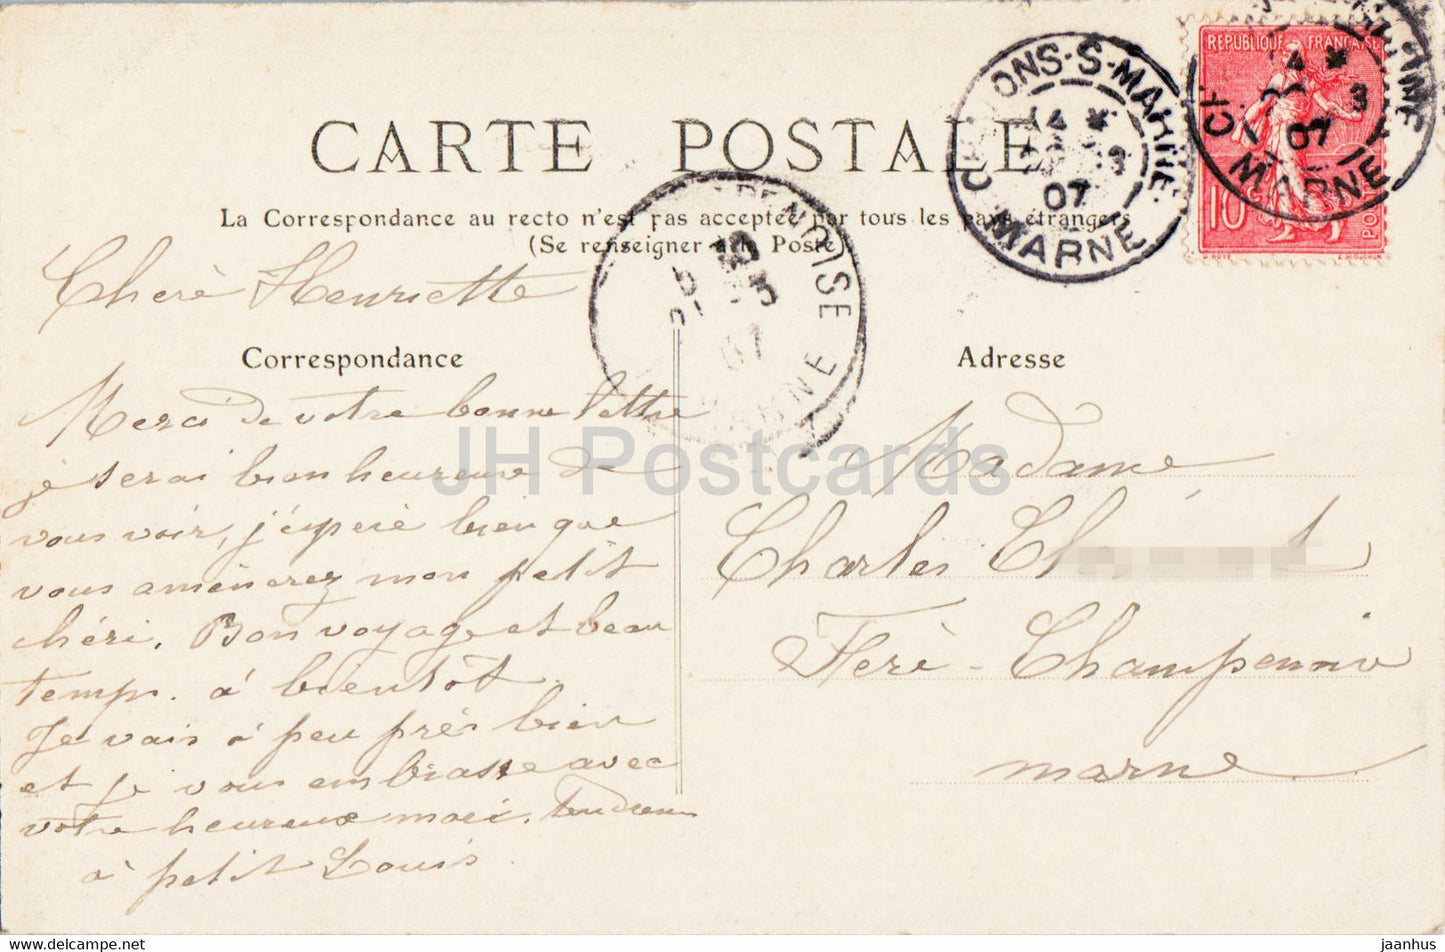 CARTE POSTALE
La Correspondance au recto n'est pas acceptée par tous les pays étrangers
(Se renseigner à la Poste)
RÉPUBLIQUE FRANÇAISE
10
CHALONS-S-MARNE
07
MARNE
MARNE
Chère Henriette
Correspondance
Merci de votre bonne lettre
je serai bien heureuse de
vous voir, j'éspère bien que
vous amènerez mon petit
chéri. Bon voyage et beau
temps. à bientôt.
Je vais à peu près bien
et je vous embrasse avec
votre heureux mari. Tendresse
à petit Louis.
Adresse
Madame
Charles
Fère-Champenoise
Marne
JH Postcards
www.hippostcard.com
jaanhus